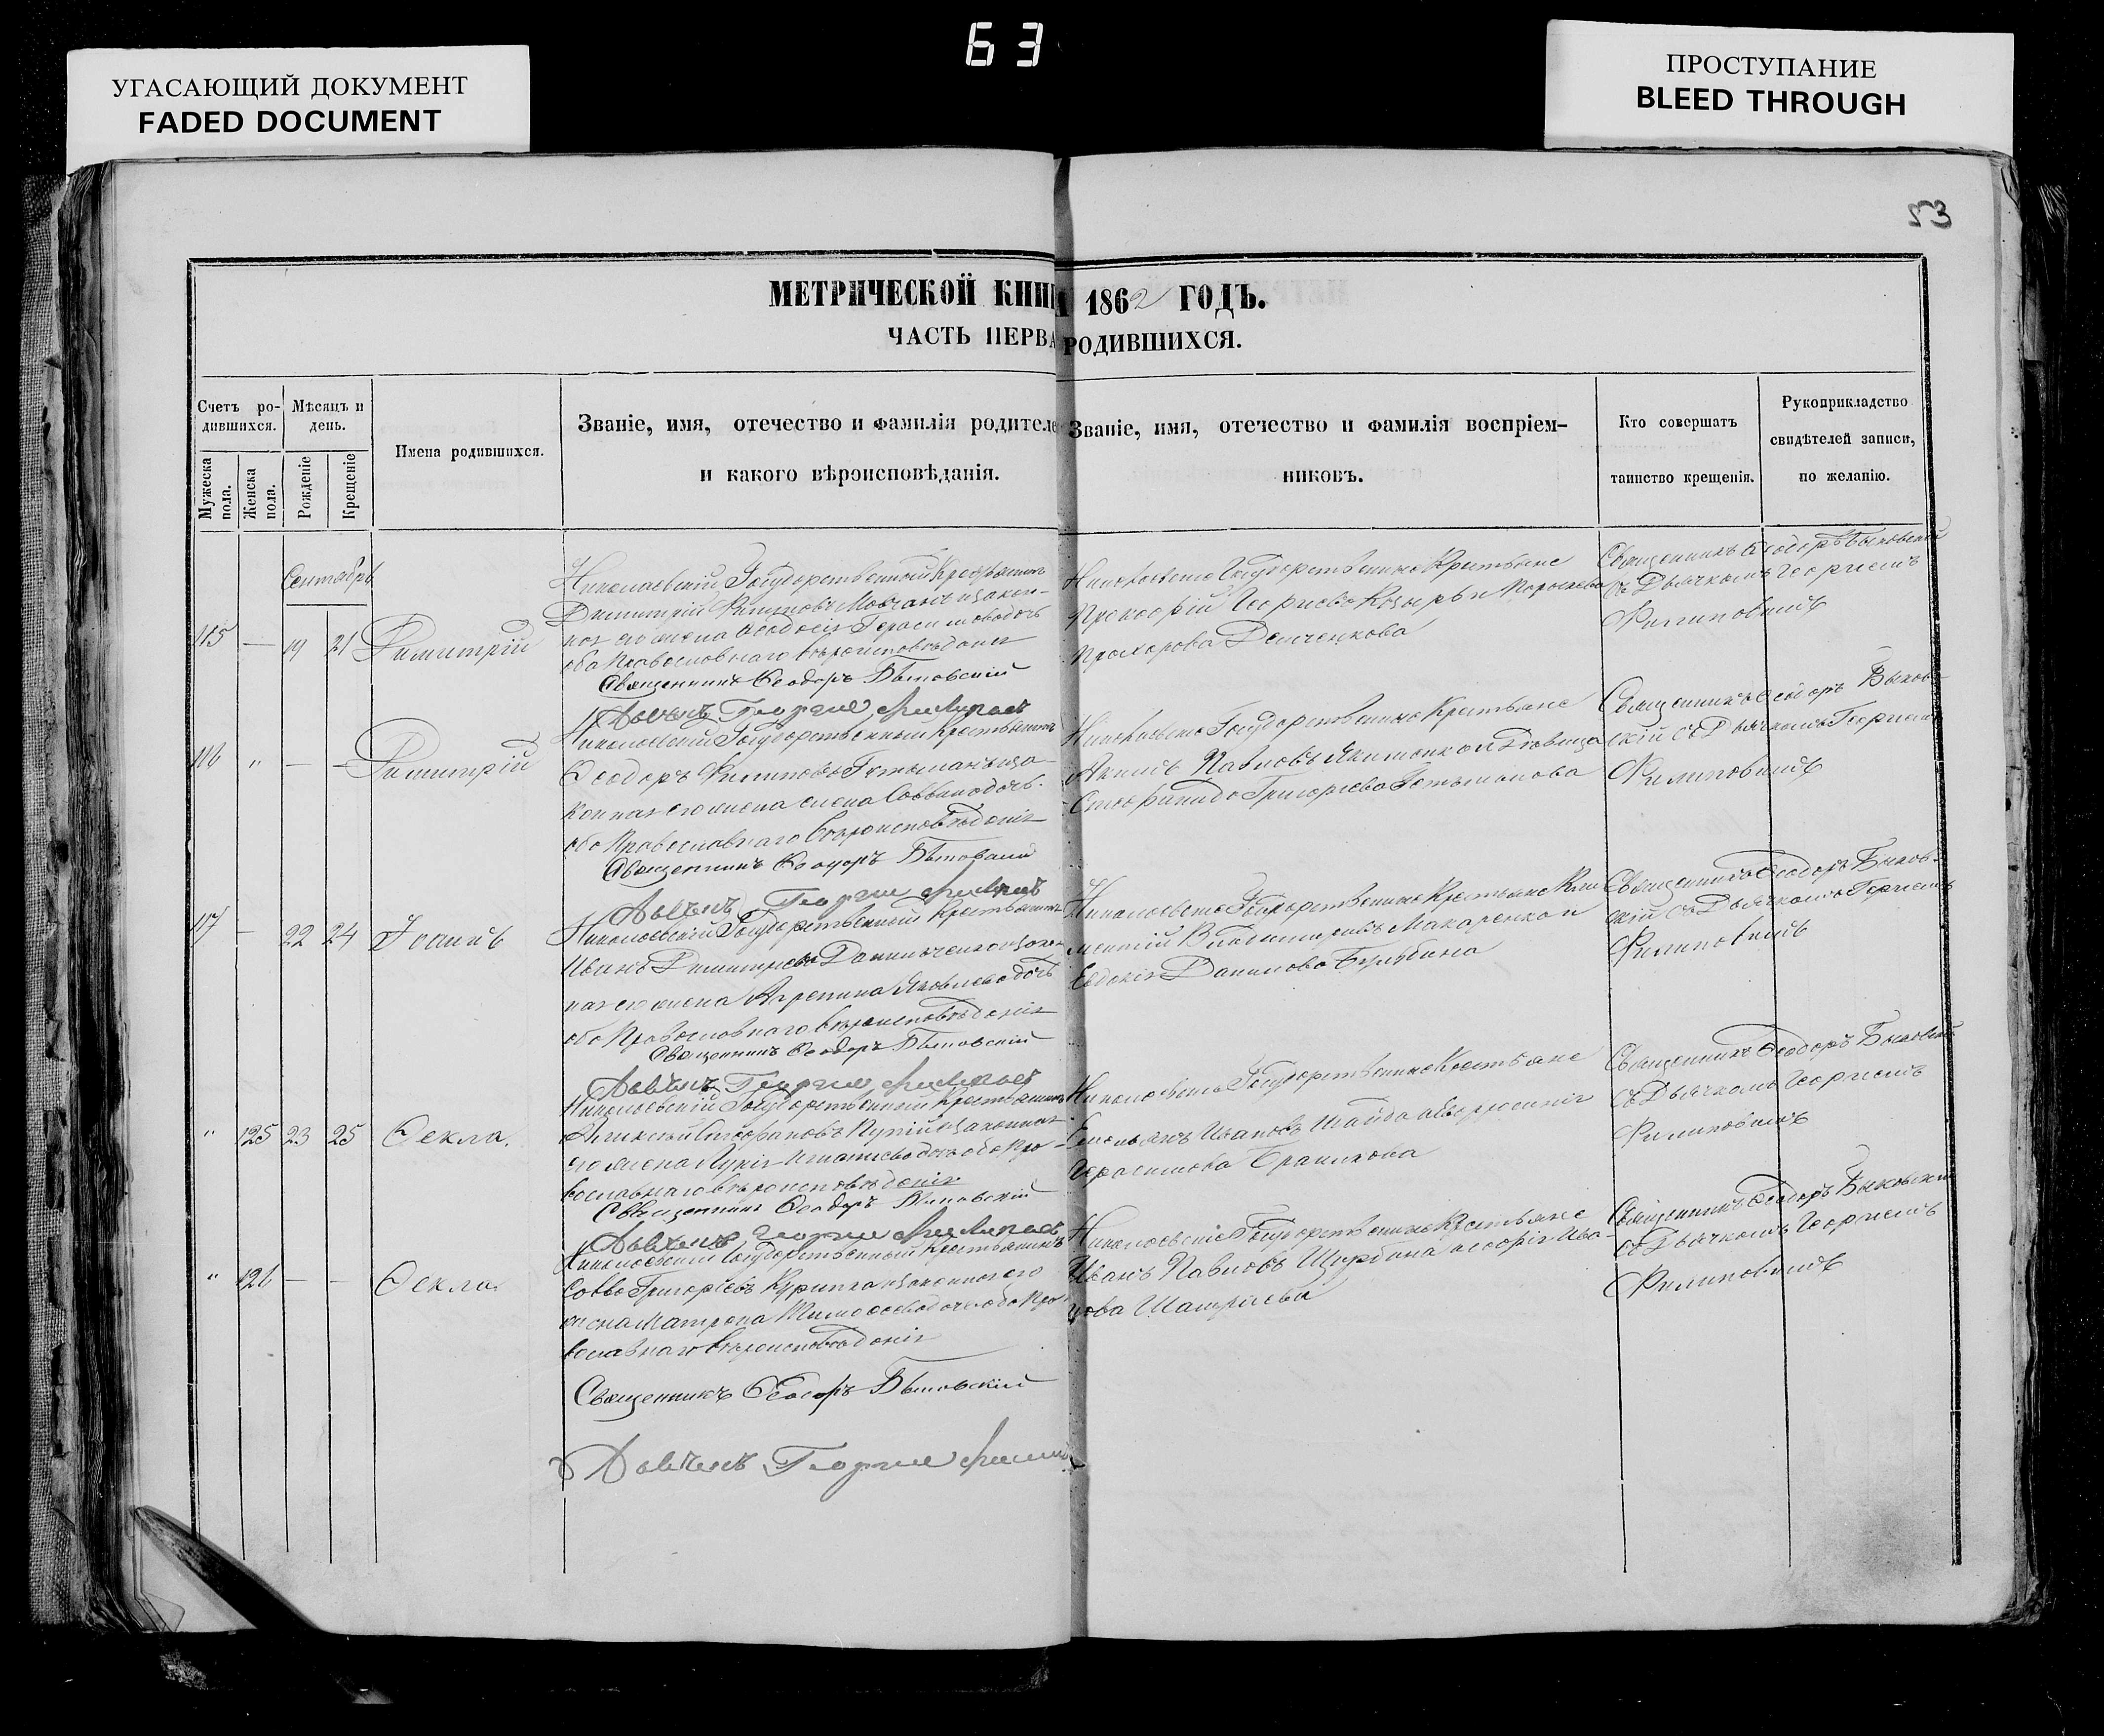 63
УГАСАЮЩИЙ ДОКУМЕНТ
FADED DOCUMENT
ПРОСТУПАНИЕ
BLEED THROUGH
53
МЕТРИЧЕСКОЙ КНИ 1862 ГОДЪ.
ЧАСТЬ ПЕРВА РОДИВШИХСЯ.
Счетъ ро-
дившихся.
Мужеска пола.
Женска пола.
Мѣсяцъ и
день.
Рожденіе
Крещеніе
Имена родившихся.
Званіе, имя, отечество и фамилія родителе
и какого вѣроисповѣданія.
Званіе, имя, отечество и фамилія воспріем-
никовъ.
Кто совершатъ
таинство крещенія.
Рукоприкладство
свидѣтелей записи,
по желанію.
Сентябрь
115 — 19 21 Димитрій
Николаевскій Государственный Крестьянинъ
Димитрій Мовчанъ и закон-
ная его жена Ѳеодосія Герасимова дочь
оба Православнаго вѣроисповѣданія
Священникъ Ѳеодоръ Быковскій
Дьячекъ Георгий
Николаевскіе Государственные Крестьяне
Прокофій Георгіевъ Козырь и
Прохорова Демченкова
Священникъ Ѳеодоръ Быковскій
съ Дьячкомъ Георгіемъ
Филиповимъ
116 " — — Димитрій
Николаевскій Государственный Крестьянинъ
Ѳеодоръ Филиповъ Гетьманъ и за-
конная его жена Елена Саввина дочь
оба Православнаго вѣроисповѣданія
Священникъ Ѳеодоръ Быковскій
Дьячекъ Георгий
Николаевскіе Государственные Крестьяне
Акимъ Павловъ Якименко и Дѣвица
Стефанида Григорьева Гетьманова
Священникъ Ѳеодоръ Быков-
скій съ Дьячкомъ Георгіемъ
Филиповимъ
117 — 22 24 Іоаннъ
Николаевскій Государственный Крестьянинъ
Иванъ Димитріевъ Данильченко и закон-
ная его жена Агрепина Яковлева дочь
оба Православнаго вѣроисповѣданія
Священникъ Ѳеодоръ Быковскій
Дьячекъ Георгий
Николаевскіе Государственные Крестьяне Кли
ментій Владимировъ Макаренко и
Евдокія Данилова Бульбина
Священникъ Ѳеодоръ Быков-
скій съ Дьячкомъ Георгіемъ
Филиповимъ
" 125 23 25 Ѳекла.
Николаевскій Государственный Крестьянинъ
Алексѣй Стефановъ и законная
его жена Лукія Игнатиева дочь оба Пра-
вославнаго вѣроисповѣданія
Священникъ Ѳеодоръ Быковскій
Дьячекъ Георгий
Николаевскіе Государственные Крестьяне
Емельянъ Ивановъ Шайда
Герасимова
Священникъ Ѳеодоръ Быковскій
съ Дьячкомъ Георгіемъ
Филиповимъ
" 126 — — Ѳекла
Николаевскій Государственный Крестьянинъ
Савва Григорьевъ и законная его
жена Матрона Тимоѳеева дочь оба Пра-
вославнаго вѣроисповѣданія
Священникъ Ѳеодоръ Быковскій
Дьячекъ Георгий
Николаевскіе Государственные Крестьяне
Иванъ Павловъ
Священникъ Ѳеодоръ Быковскій
съ Дьячкомъ Георгіемъ
Филиповимъ